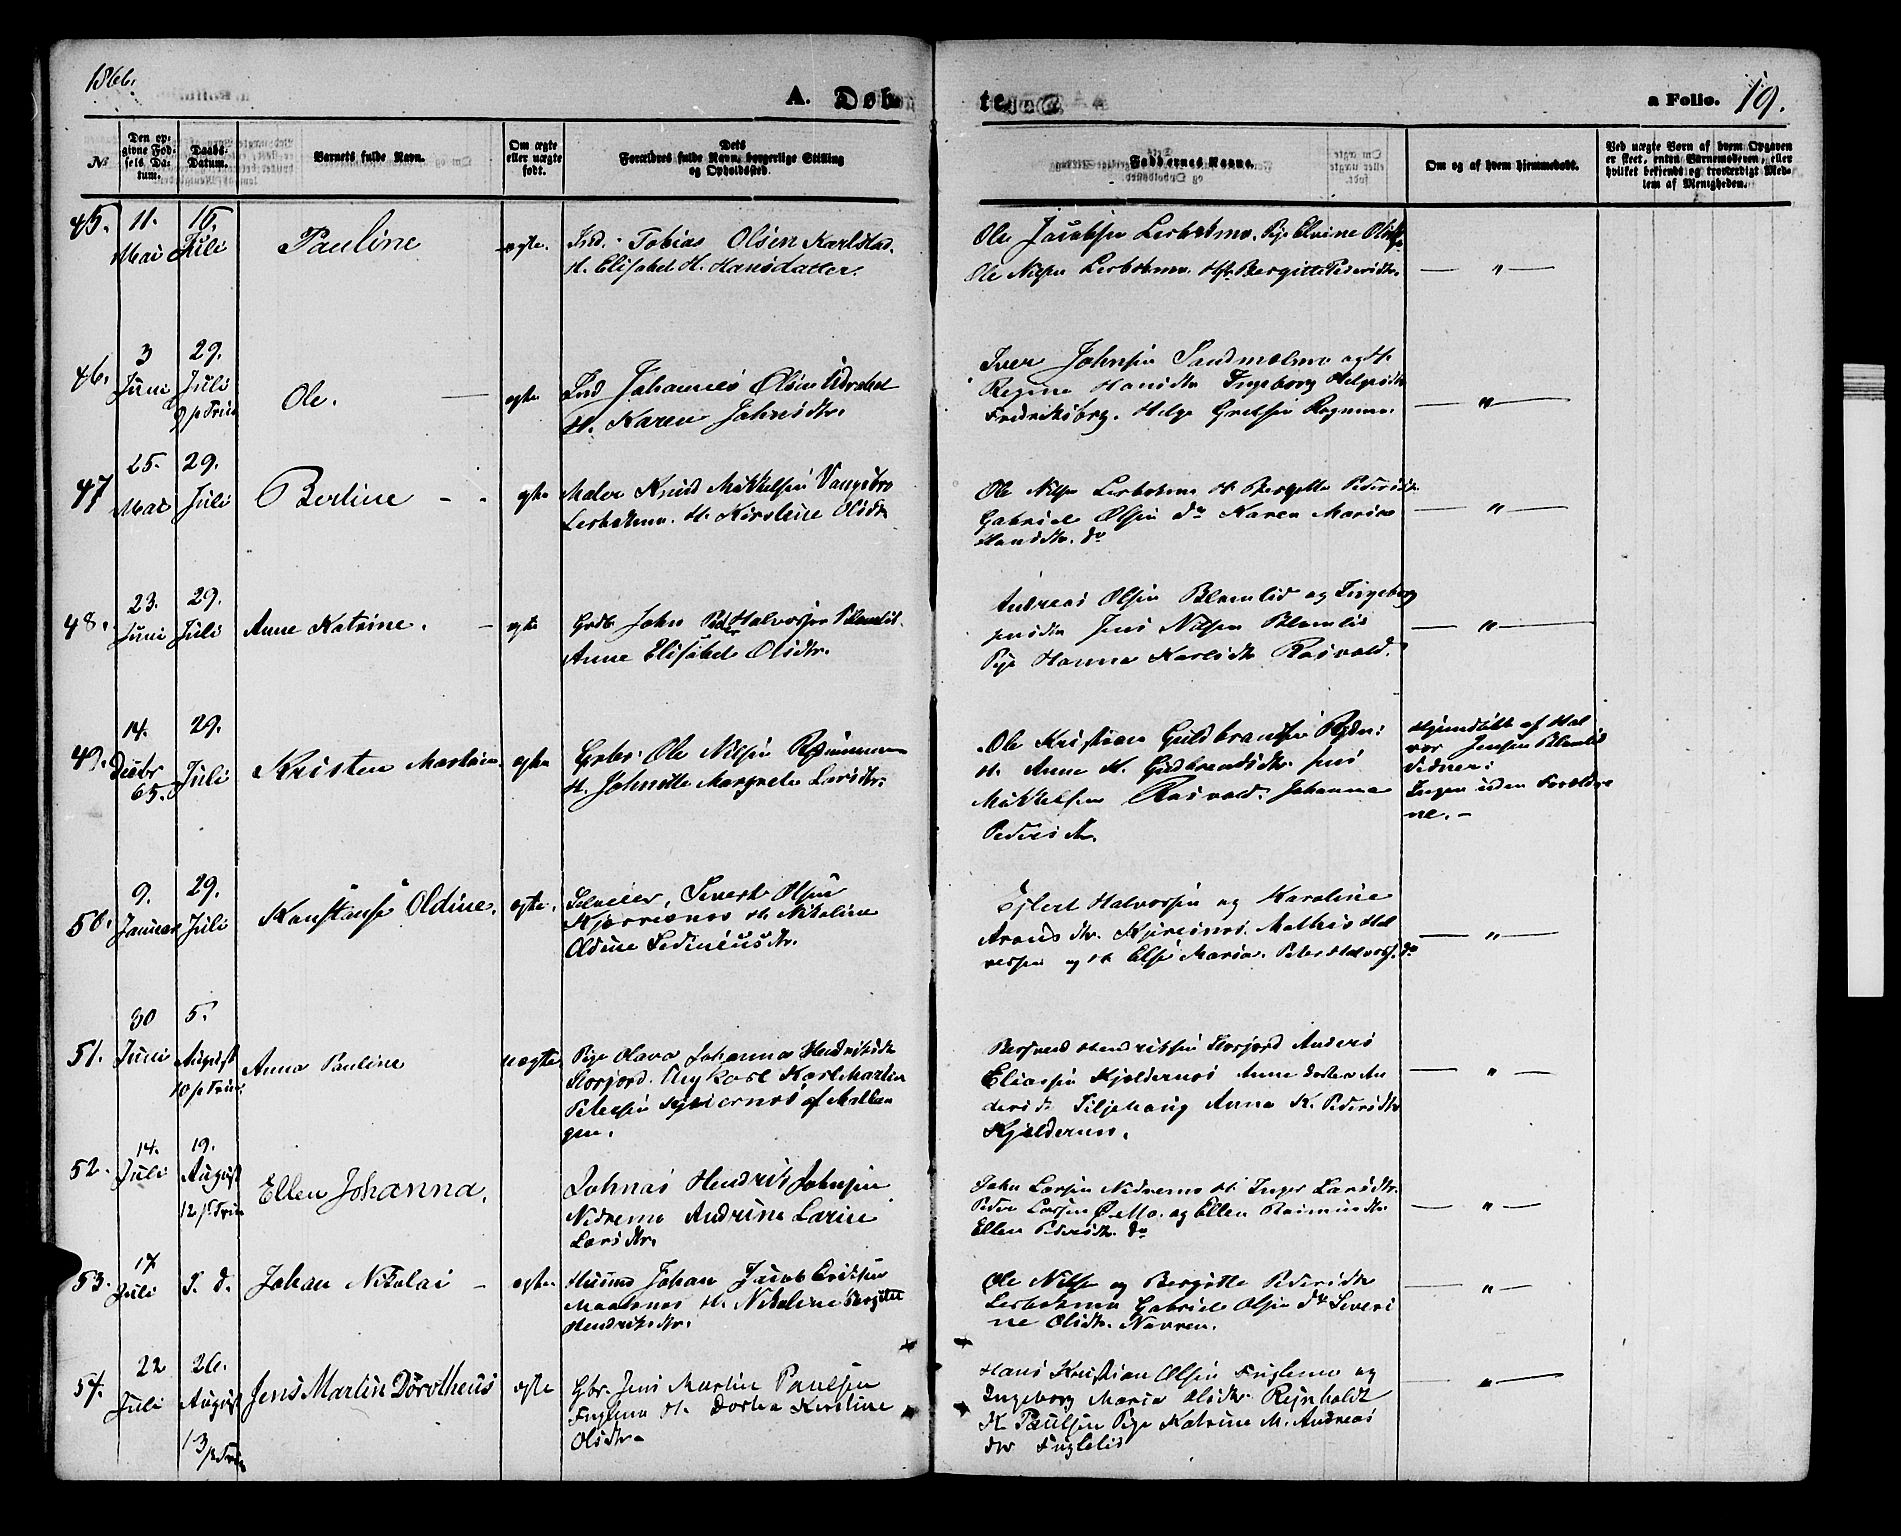 1866.
A. Døb
te
a Folio. 19.
No
Den opgivne Fødsels Datum.
Daabs-Datum.
Barnets fulde Navn.
Om ægte eller uægte født.
Dets Forældres fulde Navn, borgerlige Stilling og Opholdssted.
Faddernes Navne.
Om og af hvem hjemmedøbt.
Ved uægte Børn af hvem Opgaven er skeet, enten Barnemoderen, eller hvilket bekjendt og troværdigt Medlem af Menigheden.
45. 11. Mai 15. Juli Pauline ægte. Ind. Tobias Olsen Karlstad.
H. Elisabet H. Hansdatter.
Ole Jacobsen Lesbakmo. Pige Elvine
Ole Nilsen Lesbakmo. H. Bergitte Pedersdtr. — " —
46. 3 Juni 29. Juli 9 p Trin Ole. — ægte Ind Johannes Olsen
H. Karen Johnsdtr.
Iver Johnsen Sandmælmo
Regine Hansdtr Ingeborg Helgesdtr
Fredriksberg. Helge Rognmo. — " —
47 25. Mai 29. Juli Berline - - ægte Maler Knud Mikkelsen Vangsbro
Lesbakmo. H. Kirstine Olsdtr
Ole Nilsen Lesbakmo H Bergitte Pedersdtr
Gabriel Olsen do Karen Marie
Hansdtr. do — " —
48. 23. Juni 29. Juli Anne Katrine. - ægte Grdb. John Peder Halvorsen Blomlid.
Anne Elisabet Olsdtr.
Andreas Olsen Blomlid og Ingeborg
Jensdtr Jens Nilsen Blomlid
Pige Hanna Karlsdtr Rosvold. — " —
49. 14. Decbr 65. 29. Juli Kristen Martin. ægte Grbr. Ole Nilsen
H. Johnette Margrete Larsdtr.
Ole Kristian Guldbransen
H. Anne H. Guldbrandsdtr. Jens
Mikkelsen Rosvold. Johanna
Pedersdtr.
Hjemdøbt af Hal
vor Jensen Blomlid
Vidner:
Ingen uden Forældre
ne. -
50. 9. Januar 29. Juli Konstanse Oldine. ægte. Selveier, Sivert Olsen
Kjerresnes H. Nikoline
Oldine
Ejlert Halvorsen og Karoline
Aronsdtr. Kjerresnes. Mathis Hal
vorsen og H Else Maria. Peter Halvors. do — " —
51. 30 Juni 5. August 10 p Trin. Anna Pauline uægte Pige Olava Johanna Hendriksdtr
Storjord. Ungkarl Karl Martin
Petersen af Malan
gen.
Hendriksen Storjord Anders
Eliassen Kjeldernes Anne Dortea An
dersd. Anna K. Pedersdtr
Kjeldernes. — " —
52. 14. Juli 19. August 12 p Trin Ellen Johanna. Johnas Hendrik Johnsen
Nedremo Andrine Larine
Larsdtr.
John Larsen Nedremo H. Inger Larsdtr.
Peder Larsen Ø. Mo. og Ellen Rasmusdtr
Ellen Pedersdtr. do — " —
53. 17 Juli S. D. Johan Nikolai - ægte Husmd Johan Jacob Eriksen
Maalsnes H. Nikoline Bergitte
Hendriksdtr.
Ole Nilsen og Bergitte Pedersdtr
Lesbakmo Gabriel Olsen do Severi
ne Olsdtr. Navren. — " —
54. 22 Juli 26. August 13 p Trin Jens Martin Dorotheus ægte Gbr. Jens Martin Paulsen
Fuglemo H. Dortea Kirstine
Olsdtr.
Hans Kristian Olsen Fuglemo og
Ingeborg Maria Olsdtr. Rejnholdt
K Paulsen Pige Katrine M. Andreas
dtr Fuglelid — " —